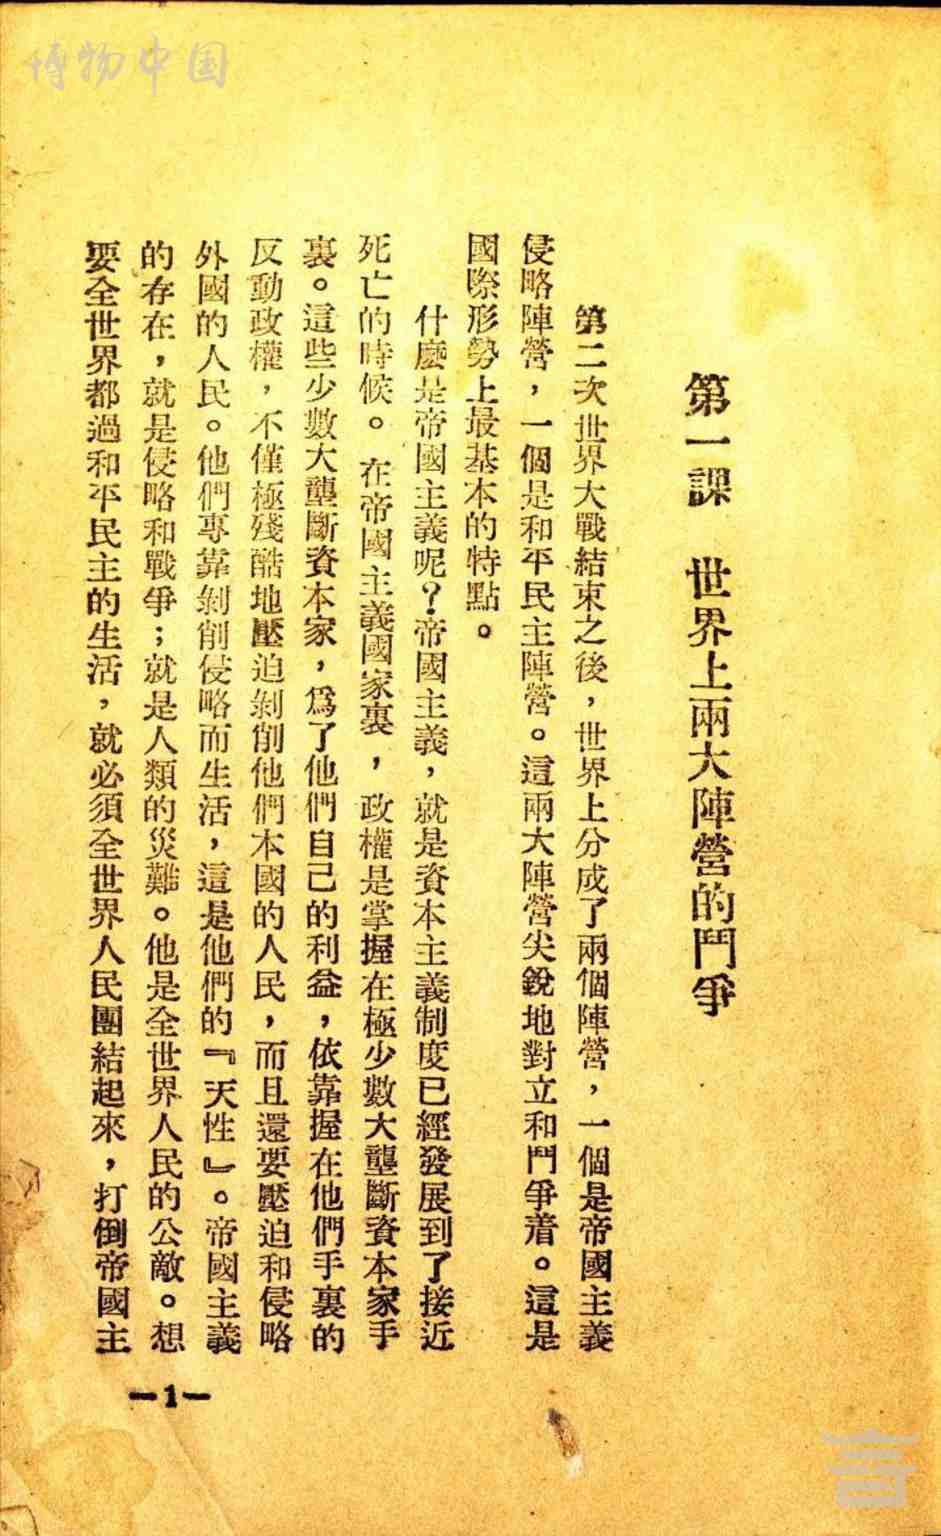 博物中国
第一課　世界上兩大陣營的鬥爭
第二次世界大戰結束之後，世界上分成了兩個陣營，一個是帝國主義
侵略陣營，一個是和平民主陣營。這兩大陣營尖銳地對立和鬥爭着。這是
國際形勢上最基本的特點。
什麽是帝國主義呢？帝國主義，就是資本主義制度已經發展到了接近
死亡的時候。在帝國主義國家裏，政權是掌握在極少數大壟斷資本家手
裏。這些少數大壟斷資本家，爲了他們自己的利益，依靠握在他們手裏的
反動政權，不僅極殘酷地壓迫剝削他們本國的人民，而且還要壓迫和侵略
外國的人民。他們專靠剝削侵略而生活，這是他們的『天性』。帝國主義
的存在，就是侵略和戰爭；就是人類的災難。他是全世界人民的公敵。想
要全世界都過和平民主的生活，就必須全世界人民團結起來，打倒帝國主
—1—
言